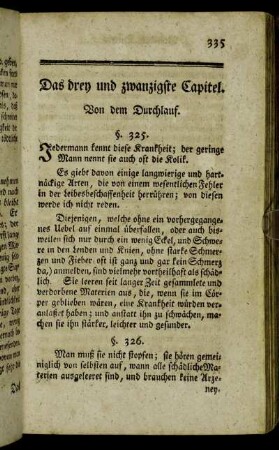 335
Das drey und zwanzigste Capitel.
Von dem Durchlauf.
§. 325.
Jedermann kennt diese Krankheit; der geringe
Mann nennt sie auch oft die Kolik.
Es giebt davon einige langwierige und hart-
näckige Arten, die von einem wesentlichen Fehler
in der Leibesbeschaffenheit herrühren; von diesen
werde ich nicht reden.
Diejenigen, welche ohne ein vorhergegange-
nes Uebel auf einmal überfallen, oder auch bis-
weilen sich nur durch ein wenig Eckel, und Schwe-
re in den Lenden und Knien, ohne starke Schmer-
zen und Fieber oft ist ganz und gar kein Schmerz
da,) anmelden, sind vielmehr vortheilhaft als schäd-
lich. Sie leeren seit langer Zeit gesammlete und
verdorbene Materien aus, die, wenn sie im Cör-
per geblieben wären, eine Krankheit würden ver-
anlasset haben; und anstatt ihn zu schwächen, ma-
chen sie ihn stärker, leichter und gesunder.
§. 326.
Man muß sie nicht stopfen; sie hören gemei-
niglich von selbsten auf, wann alle schädliche Ma-
terien ausgeleeret sind, und brauchen keine Arze-
ney.